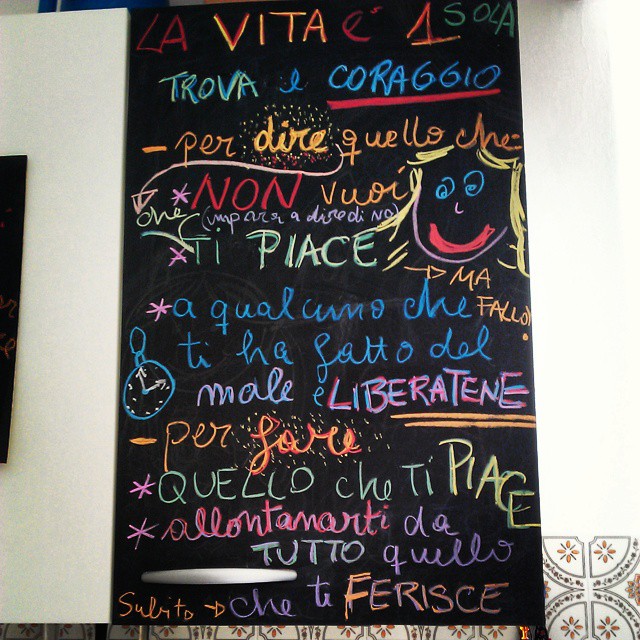 LA VITA è 1 SOLA
TROVA il CORAGGIO
- per dire quello che:
* NON vuoi
(imparsi a dire di NO)
che
* Ti PIACE
→ MA
FALLO!
* a qualcuno che
ti ha fatto del
male e LIBERATENE
- per fare
* QUELLO che Ti PIACE
* allontanarti da
TUTTO quello
Subito → che ti FERISCE